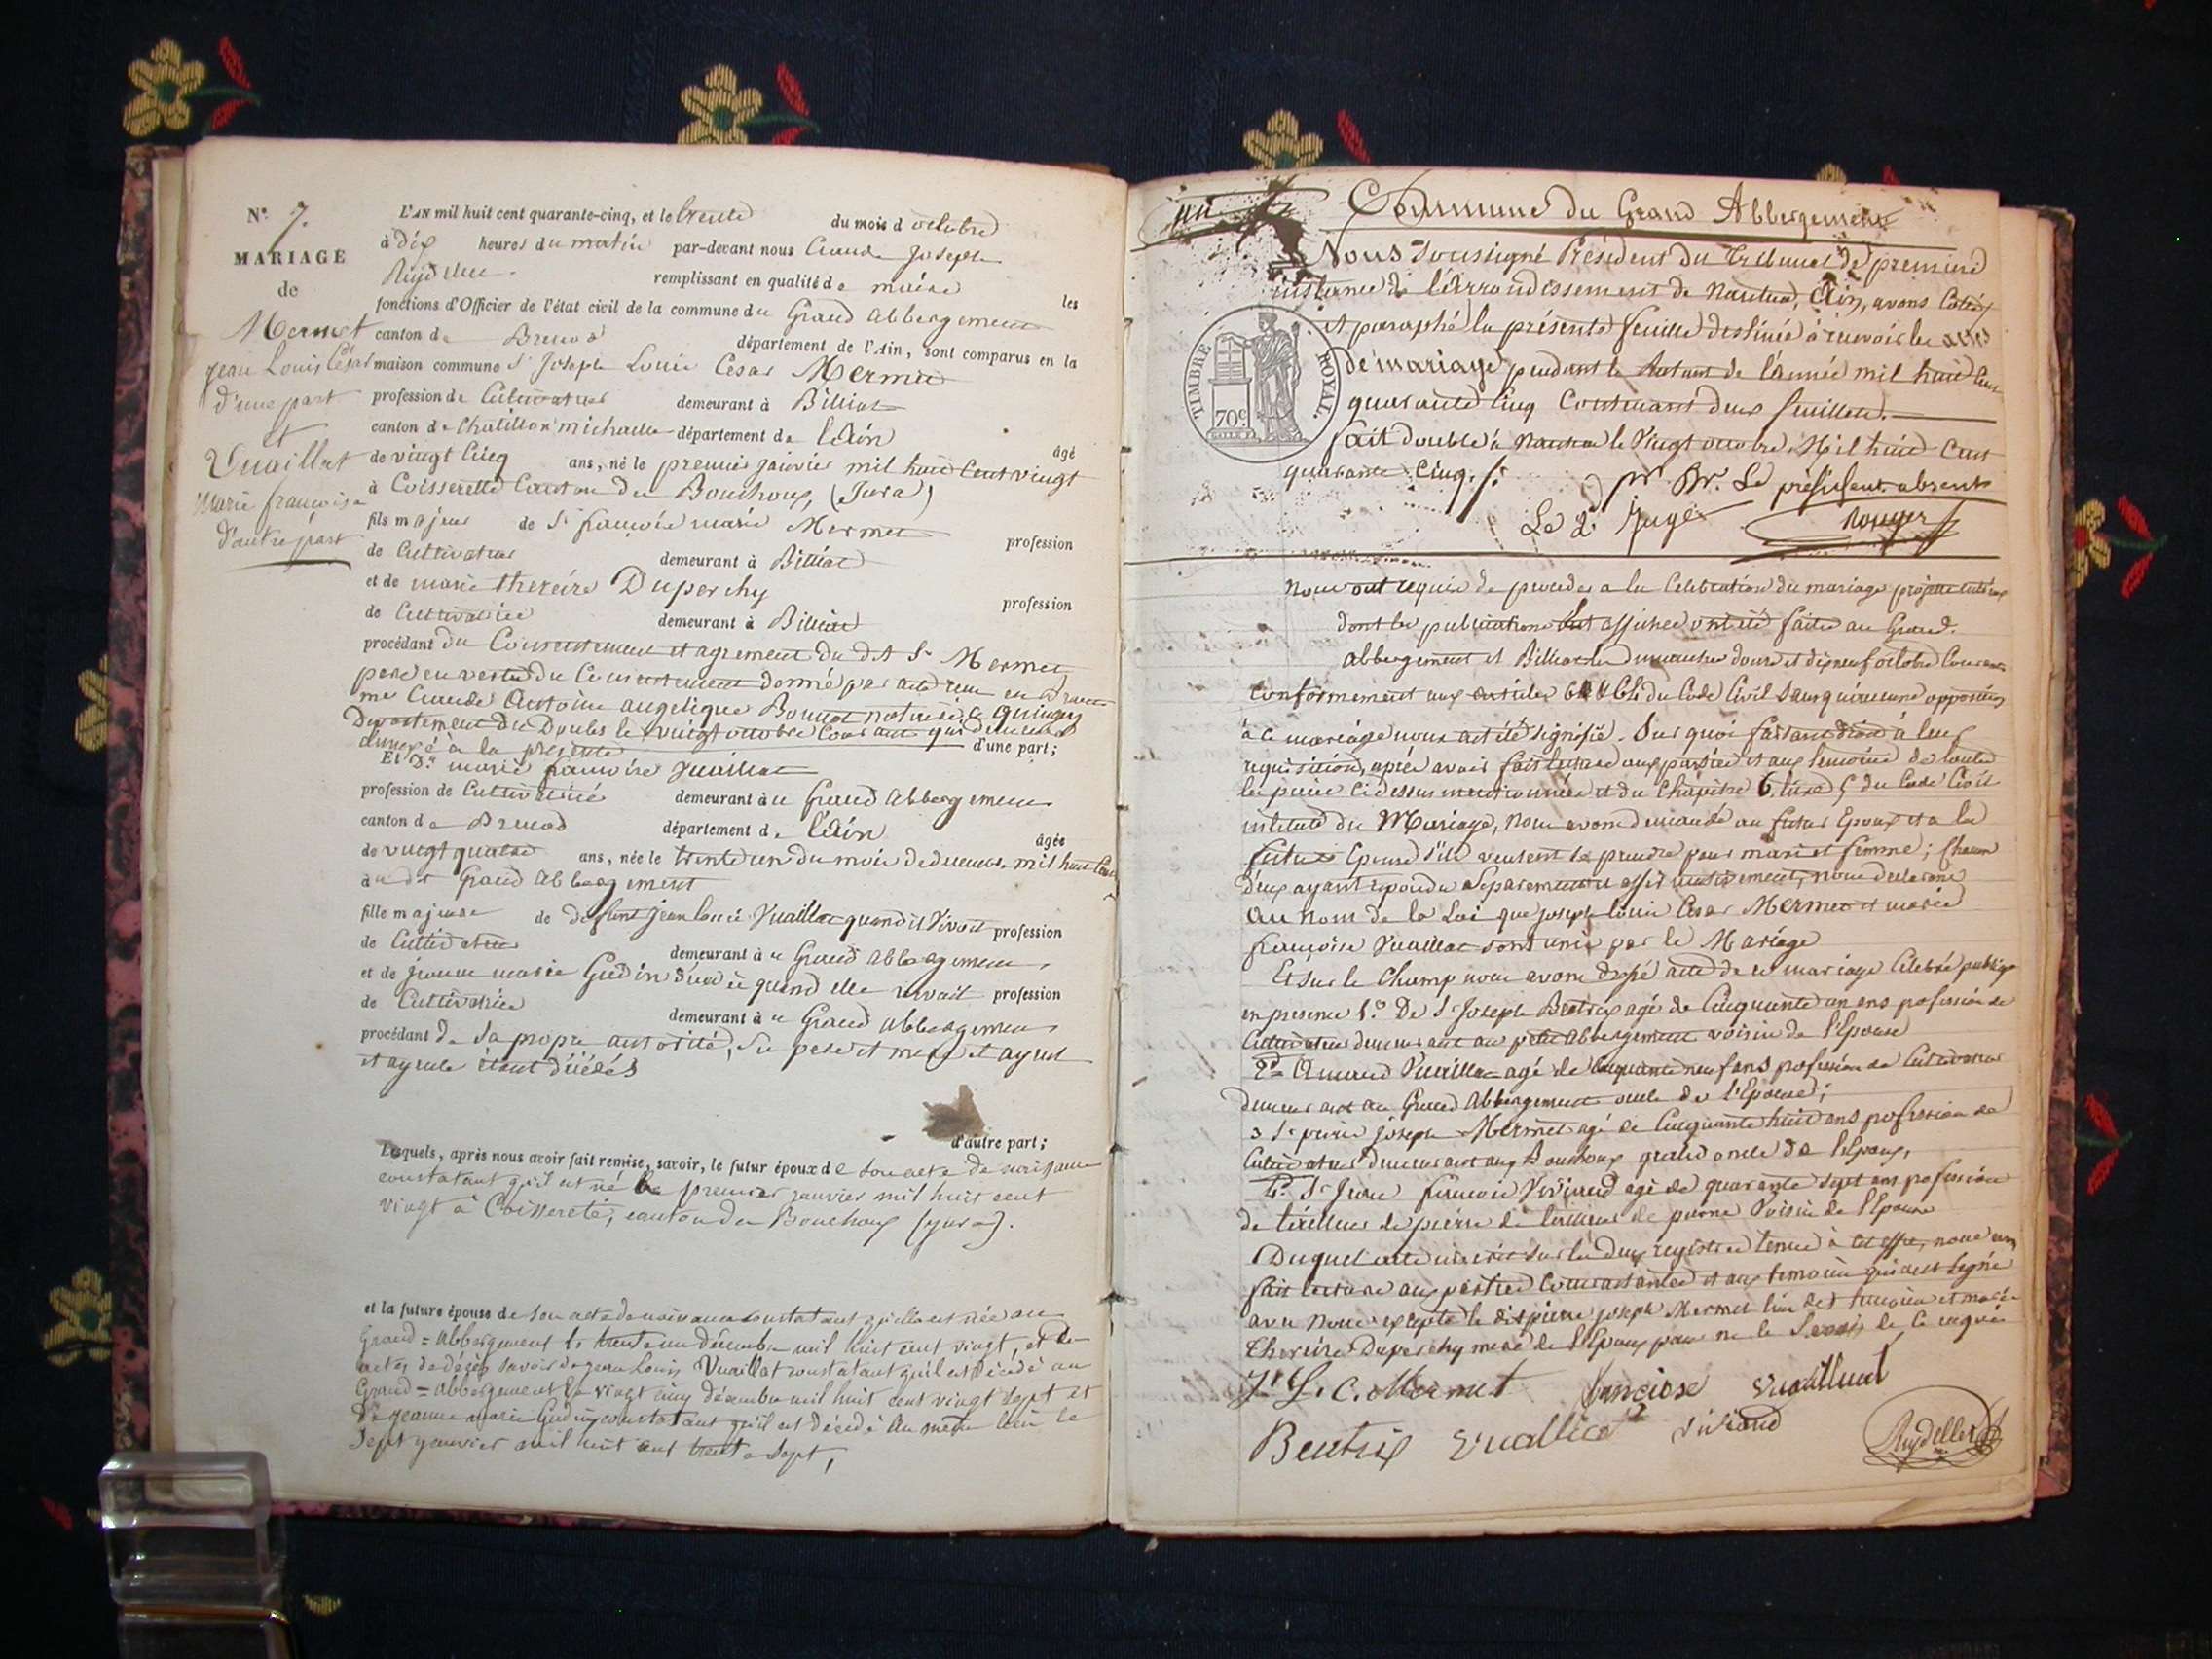 N.° 7.
MARIAGE
de
Mermet
Jean Louis César
d'une part
et
Vuaillat
Marie françoise
d'autre part
L'AN mil huit cent quarante-cinq, et le trente du mois d'octobre
à dix heures du matin par-devant nous Claude Joseph
remplissant en qualité de maire les
fonctions d'Officier de l'état civil de la commune du Grand Abbergement
canton de Brenod département de l'Ain, sont comparus en la
maison commune Sr Joseph Louis César Mermet
profession de Cultivateur demeurant à Billiat
canton de Chatillon michaille département de l'Ain âgé
de vingt Cinq ans, né le premier janvier mil huit Cent vingt
à Coisserette Canton du Bouchoux, (Jura)
fils majeur de Sr françois marie Mermet profession
de Cultivateur demeurant à Billiat
et de marie thereise Duperchy profession
de Cultivatrice demeurant à Billiat
procédant du Consentement et agrement du dit Sr Mermet
pere en vertu du Consentement donné par acte reçu
me Claude Antoine angelique Bonnot notaire à Quingey
Departement du Doubs le vingt octobre Courant qui demeure
annexé à la presente d'une part;
Et Dlle marie françoise Vuaillat
profession de Cultivatrice demeurant au Grand Abbergement
canton de Brenod département de l'Ain âgée
de vingt quatre ans, née le trente un du mois de decembre mil huit Cent
au dit Grand Abbergement
fille majeure de deffunt jean louis Vuaillat quand il Vivait profession
de Cultivateur demeurant au Grand Abbergement,
et de jeanne marie Gudin quand elle vivait profession
de Cultivatrice demeurant au Grand Abbergement
procédant de sa propre autorité, Ses pere et mere et ayeul
et ayeule étant décédés
d'autre part;
Lesquels, après nous avoir fait remise, savoir, le futur époux de son acte de naissance
constatant qu'il est né le premier janvier mil huit cent
vingt à Coisserete, canton du Bouchoux (jura).
et la future épouse de son acte de naissance constatant qu'elle est née au
Grand=abbergement le trente un décembre mil huit cent vingt, et des
actes de décès savoir de jean Louis Vuaillat constatant qu'il est décédé au
Grand=abbergement le vingt cinq décembre mil huit cent vingt sept et
de jeanne marie Gudin constatant qu'il est décédé au même lieu le
Sept janvier mil huit cent trente sept,
Commune du Grand Abbergement
Nous soussigné Président du Tribunal de premiere
instance de l'arrondissement de Nantua, Ain, avons Coté
et paraphé la présente feuille destinée à recevoir les actes
de mariage pendant le restant de l'année mil huit Cent
quarante cinq Contenant deux feuillets.
TIMBRE ROYAL.
70c
fait double à Nantua le Vingt octobre Mil huit Cent
quarante Cinq.
Pr Mr. Le président absent
Le 2e Juge
Rouyer
nous ont requis de proceder a la Celebration du mariage projetté entr'eux
dont les publications et affiches ont été faites au Grand.
Abbergement et Billiat les dimanches douze et dix neuf octobre Courant
Conformement aux articles 63 & 64 du Code Civil sans qu'aucune opposition
à ce mariage nous ait été signifié. Sur quoi faisant droit à leur
requisition, après avoir fait lecture aux parties et aux temoins de toutes
les pieces ci dessus mentionnées et du Chapitre 6, titre 5 du Code Civil
intitulé du Mariage, nous avons demandé au futur Epoux et a la
future Epouse s'ils veulent se prendre pour mari et femme; Chacun
d'eux ayant repondu Separement et affirmativement, nous declarons
au nom de la Loi que joseph louis César Mermet et marie
françoise Vuaillat sont unis par le Mariage
Et sur le Champ nous avons dressé acte de ce mariage Célébré publiq.
en presence 1.° De Sr Joseph Beatrix agé de Cinquante un ans profession de
Cultivateur demeurant au petit Abbergement voisin de l'Epouse
2° Amand Vuaillat agé de Cinquante neuf ans profession de Cultivateur
demeurant au Grand Abbergement oncle de l'Epouse;
3 Sr pierre joseph Mermet agé de Cinquante huit ans profession de
Cultivateur demeurant aux Bouchoux grand oncle de l'Epoux,
4° Sr Jean françois Vivi and agé de quarante sept ans profession
de tailleur de pierre de tailleur de pierre Voisin de l'Epouse
Duquel acte inscrit sur les deux registres tenus à cet effet, nous avons
fait lecture aux parties Contractantes et aux temoins qui ont signé
avec nous excepté le dit pierre joseph Mermet l'un des temoins et marie
thereise Duperchy mere de l'Epoux pour ne le Savoir de Ce requis
J. L. C. Mermet françoise Vuaillat
Beatrix Vuallicat Viviand